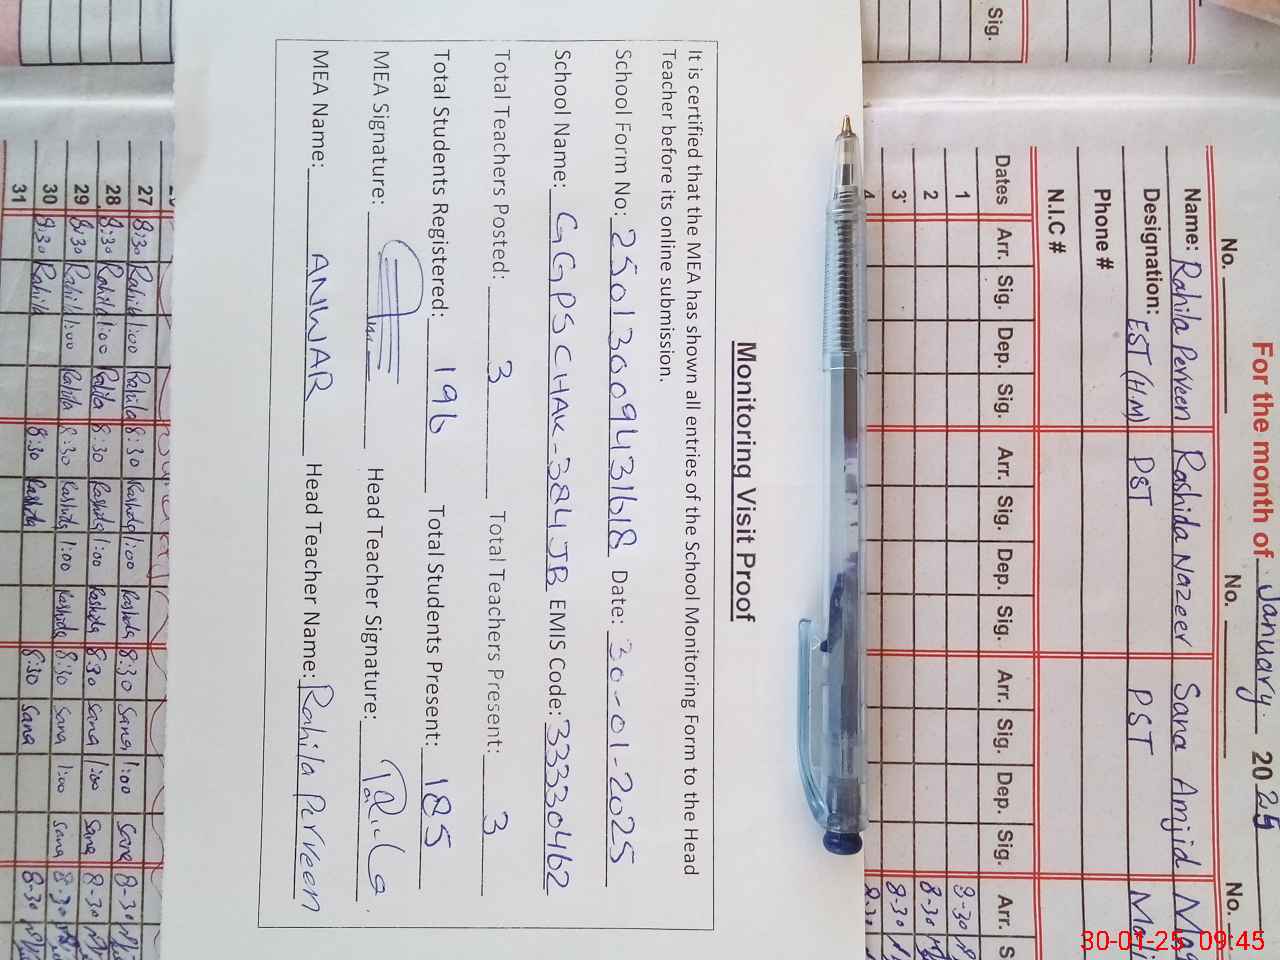 For the month of January 2025
No. No. No.
Name: Rahila Perveen Rashida Nazeer Sana Amjid
Designation: EST (HM) PST PST
Phone #
N.I.C #
Dates Arr. Sig. Dep. Sig. Arr. Sig. Dep. Sig. Arr. Sig. Dep. Sig. Arr.
1 8-30
2 8-30
3 8-30
4 8-30
Sig.
Monitoring Visit Proof
It is certified that the MEA has shown all entries of the School Monitoring Form to the Head
Teacher before its online submission.
School Form No: 25013009431618 Date: 30-01-2025
School Name: GGPS CHAK-384 JB EMIS Code: 33330462
Total Teachers Posted: 3 Total Teachers Present: 3
Total Students Registered: 196 Total Students Present: 185
MEA Signature: Head Teacher Signature:
MEA Name: ANWAR Head Teacher Name: Rahila Perveen
27 8:30 Rahila 1:00 Rahila 8:30 Rashida 1:00 Rashida 8:30 Sana 1:00 Sana 8-30
28 8:30 Rahila 1:00 Rahila 8:30 Rashida 1:00 Rashida 8:30 Sana 1:00 Sana 8-30
29 8:30 Rahila 1:00 Rahila 8:30 Rashida 1:00 Rashida 8:30 Sana 1:00 Sana 8-30
30 8:30 Rahila 8:30 Rashida 8:30 Sana 8-30
31
30-01-25 09:45